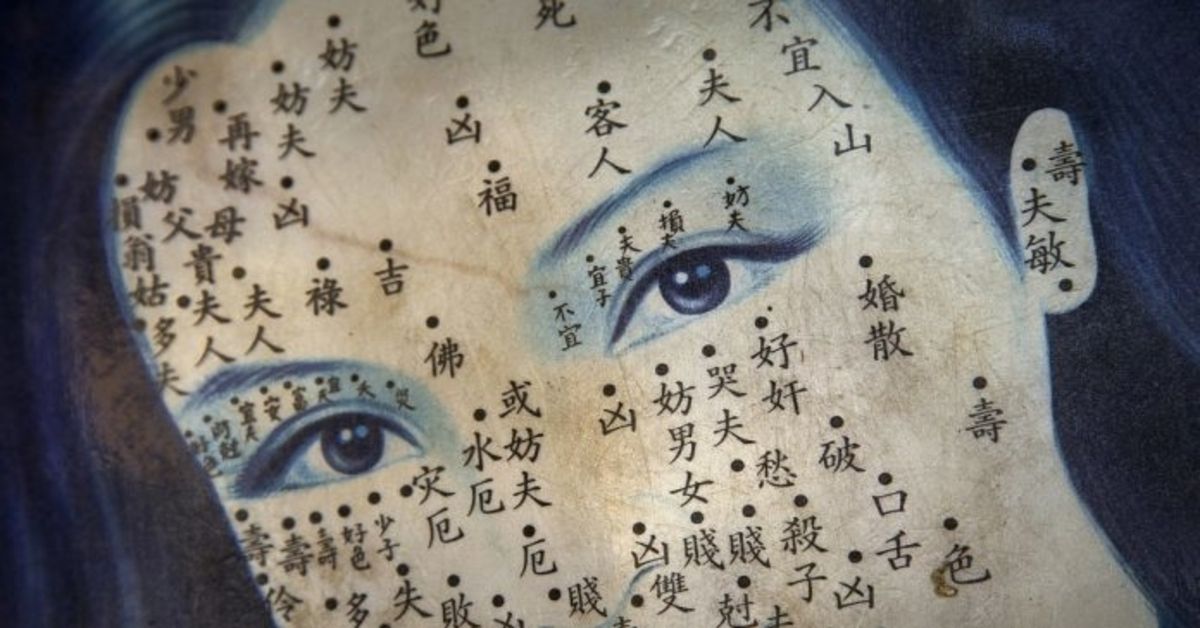 好色
死
不宜入山
妨夫
夫人
少男
妨夫
再嫁
凶
客人
福
妨父母
凶
損翁姑
貴夫人
夫人
祿
吉
佛
多夫
妨夫
損夫
夫貴
宜子
不宜
壽
夫敏
婚散
好奸
哭夫
妨男女
凶
或妨夫
水厄
灾厄
厄
愁
破
壽
口舌
殺子
賤
賤
凶
色
凶
雙
尅夫
賤
敗
失
多
少子
好色
壽
壽
壽
伶